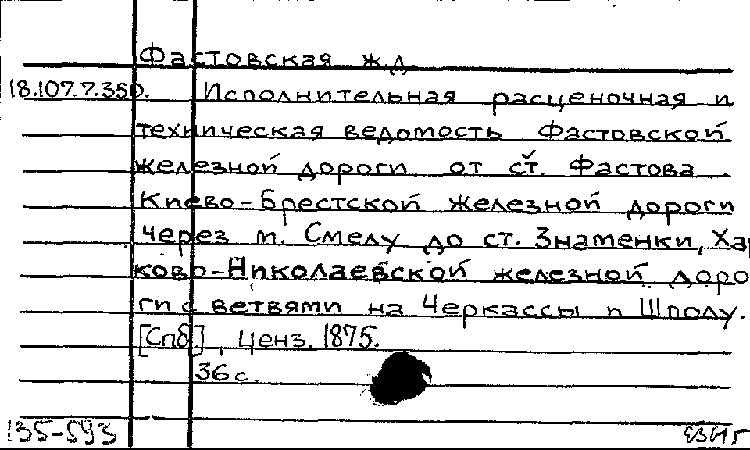 Фастовская ж.д.
18.107.7.350. Исполнительная расценочная и
техническая ведомость Фастовской
железной дороги от ст. Фастова
Киево-Брестской железной дороги
через м. Смелу до ст. Знаменки, Харь
ково-Николаевской железной доро
ги с ветвями на Черкассы и Шполу.
[Спб.], ценз. 1875.
36 с.
135-593